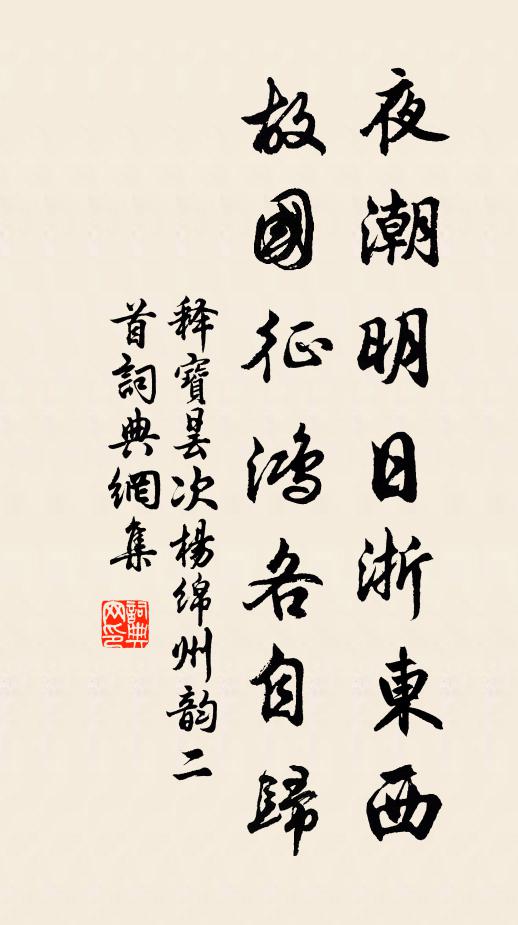 夜潮明日浙東西
故國征鴻各自歸
释寶曇次楊綿州韵二
首詞典網集
詞典
网印